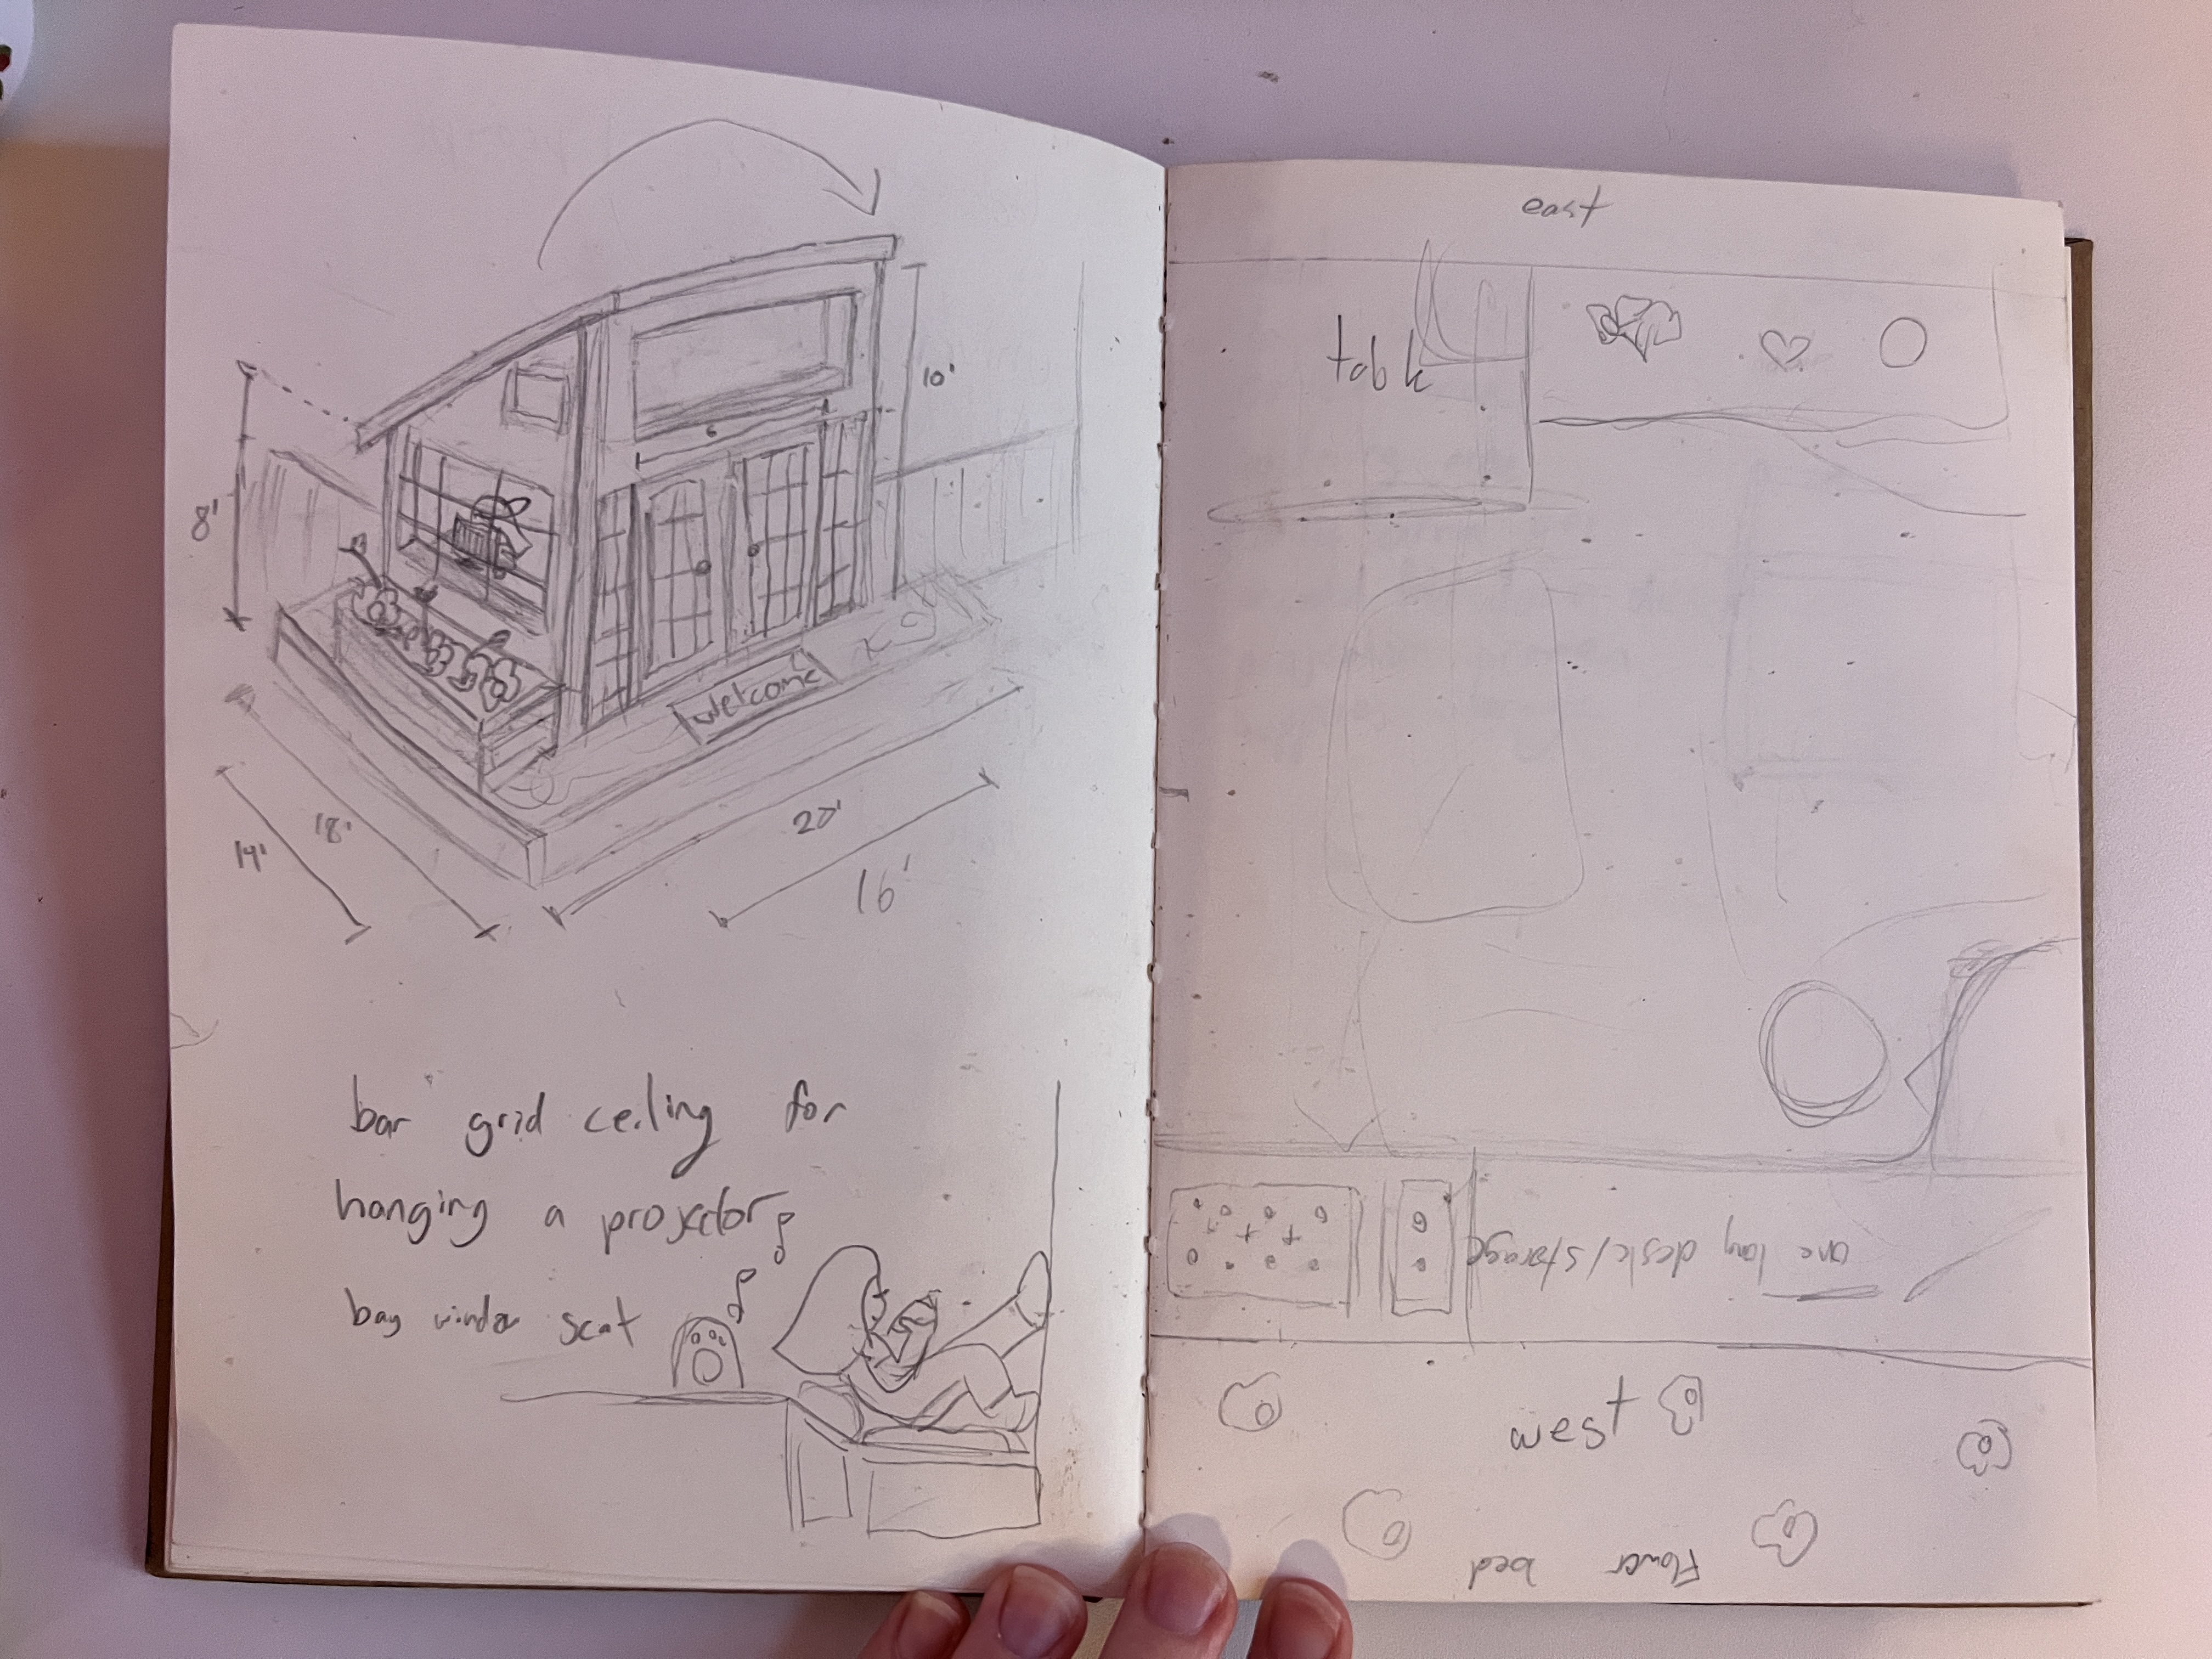 10'
6
8'
welcome
14'
18'
20'
16'
bar grid ceiling for
hanging a projector
bay window seat
east
table
one long desk/storage
west
Flower bed